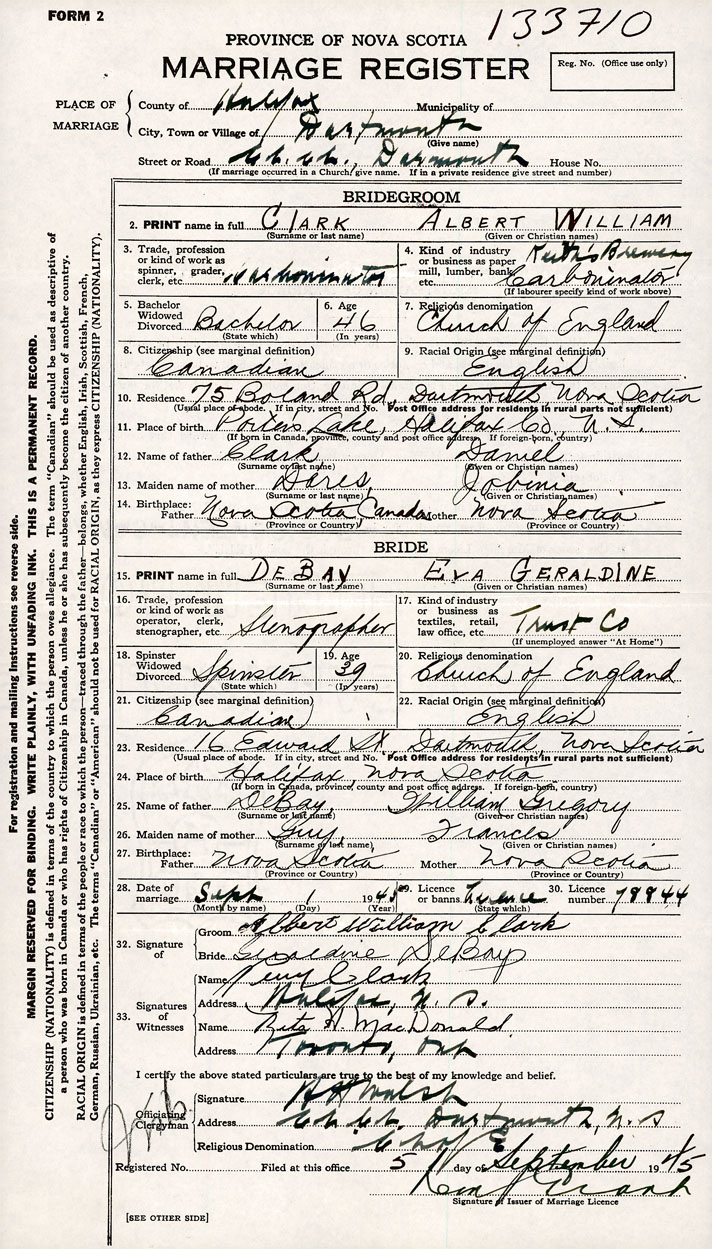 FORM 2
133710
PROVINCE OF NOVA SCOTIA
MARRIAGE REGISTER
Reg. No. (Office use only)
PLACE OF MARRIAGE
County of Halifax Municipality of
City, Town or Village of Dartmouth
(Give name)
Street or Road Ch. Ch., Darmouth House No.
(If marriage occurred in a Church give name. If in a private residence give street and number)
BRIDEGROOM
2. PRINT name in full CLARK ALBERT WILLIAM
(Surname or last name) (Given or Christian names)
3. Trade, profession or kind of work as spinner, grader, clerk, etc. Carboninator
4. Kind of industry or business as paper mill, lumber, bank, etc. Keith's Brewery Carboninator
(If labourer specify kind of work above)
5. Bachelor Widowed Divorced Bachelor (State which)
6. Age 46 (In years)
7. Religious denomination Church of England
8. Citizenship (see marginal definition) Canadian
9. Racial Origin (see marginal definition) English
10. Residence 75 Boland Rd, Dartmouth, Nova Scotia
(Usual place of abode. If in city, street and No. Post Office address for residents in rural parts not sufficient)
11. Place of birth Porters Lake, Halifax Co., N.S.
(If born in Canada, province, county and post office address. If foreign-born, country)
12. Name of father Clark, Daniel
(Surname or last name) (Given or Christian names)
13. Maiden name of mother Dares, Jobinia
(Surname or last name) (Given or Christian names)
14. Birthplace: Father Nova Scotia Canada Mother Nova Scotia
(Province or Country) (Province or Country)
BRIDE
15. PRINT name in full DEBAY EVA GERALDINE
(Surname or last name) (Given or Christian names)
16. Trade, profession or kind of work as operator, clerk, stenographer, etc. Stenographer
17. Kind of industry or business as textiles, retail, law office, etc. Trust Co
(If unemployed answer "At Home")
18. Spinster Widowed Divorced Spinster (State which)
19. Age 39 (In years)
20. Religious denomination Church of England
21. Citizenship (see marginal definition) Canadian
22. Racial Origin (see marginal definition) English
23. Residence 16 Edward St., Dartmouth, Nova Scotia
(Usual place of abode. If in city, street and No. Post Office address for residents in rural parts not sufficient)
24. Place of birth Halifax, Nova Scotia
(If born in Canada, province, county and post office address. If foreign-born, country)
25. Name of father DeBay, William Gregory
(Surname or last name) (Given or Christian names)
26. Maiden name of mother Guy, Frances
(Surname or last name) (Given or Christian names)
27. Birthplace: Father Nova Scotia Mother Nova Scotia
(Province or Country) (Province or Country)
28. Date of marriage Sept 1 1945
(Month by name) (Day) (Year)
29. Licence or banns Licence (State which)
30. Licence number 78844
32. Signature of
Groom Albert William Clark
Bride Geraldine DeBay
33. Signatures of Witnesses
Name Clark
Address Halifax, N.S.
Name Rita H. MacDonald
Address Toronto, Ont
I certify the above stated particulars are true to the best of my knowledge and belief.
Officiating Clergyman
Signature Walsh
Address Ch. Ch. Dartmouth, N.S
Religious Denomination Ch of E
Registered No. Filed at this office 5 day of September 1945
Signature of Issuer of Marriage Licence
[SEE OTHER SIDE]
For registration and mailing instructions see reverse side.
MARGIN RESERVED FOR BINDING. WRITE PLAINLY, WITH UNFADING INK. THIS IS A PERMANENT RECORD.
CITIZENSHIP (NATIONALITY) is defined in terms of the country to which the person owes allegiance. The term "Canadian" should be used as descriptive of
a person who was born in Canada or who has rights of Citizenship in Canada, unless he or she has subsequently become the citizen of another country.
RACIAL ORIGIN is defined in terms of the people or race to which the person—traced through the father—belongs, whether English, Irish, Scottish, French,
German, Russian, Ukrainian, etc. The terms "Canadian" or "American" should not be used for RACIAL ORIGIN, as they express CITIZENSHIP (NATIONALITY).